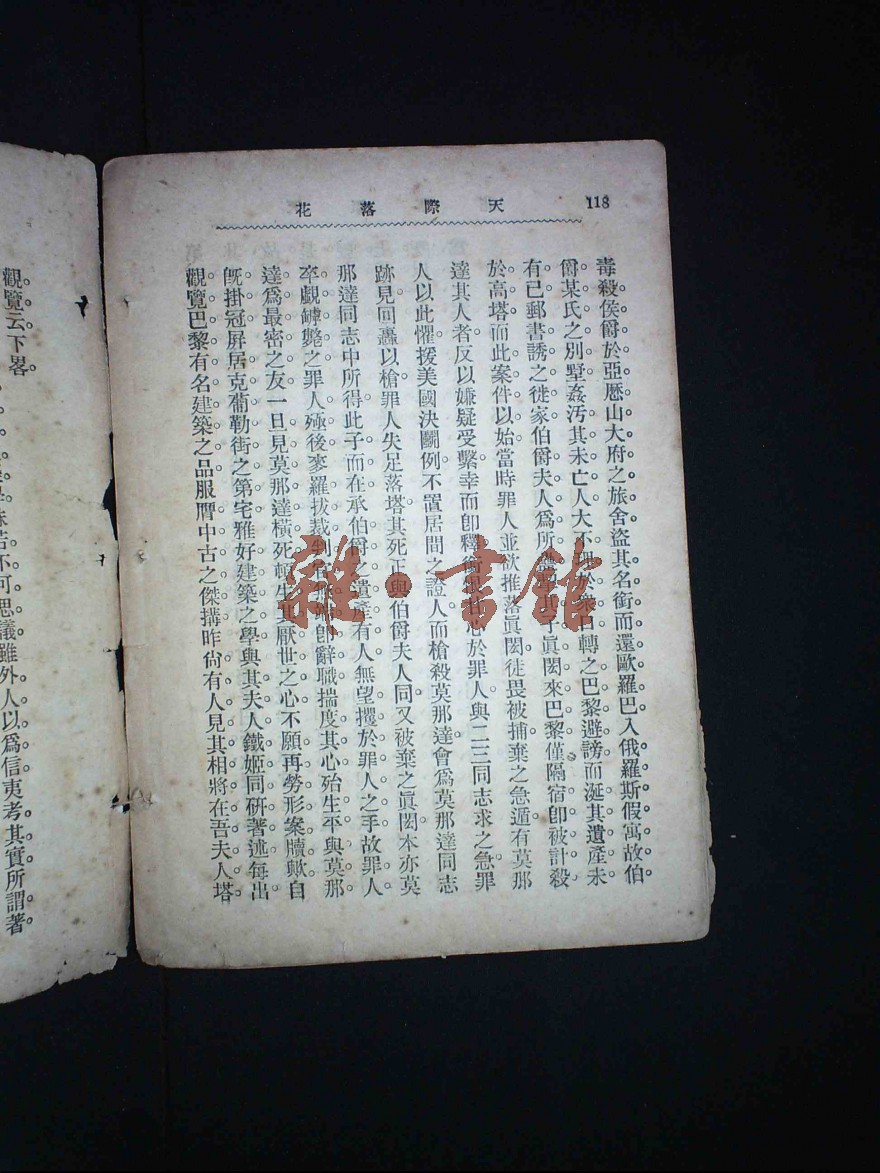 118
天際落花
毒殺侯爵於亞歷山大府之旅舍盜其名銜而還歐羅巴入俄羅斯假寓故伯
爵某氏之別墅姦汚其未亡人大不理於衆口轉之巴黎避謗而涎其遺產未
有已郵書誘之徙家伯爵夫人爲所其子眞閎來巴黎僅隔宿卽被計殺
於高塔而此案件以始當時罪人並欲推落眞閎徒畏被捕棄之急遁有莫那
達其人者反以嫌疑受繫幸而卽釋心於罪人與二三同志求之急罪
人以此懼援美國決鬭例不置居間之證人而槍殺莫那達會爲莫那達同志
跡見回轟以槍罪人失足落塔其死正與伯爵夫人同又被棄之眞閎本亦莫
那達同志中所得此子而在承伯爵之遺產有人無望攫於罪人之手故罪人
卒觑罅斃之罪人殛後麥羅拔裁判卽辭職揣度其心殆生平與莫那
達爲最密之友一旦見莫那達橫死頓生其厭世之心不願再勞形案牘歟自
旣掛冠屏居克葡勒街之第宅雅好建築之學與其夫人鐵姬同硏著述每出
觀覽巴黎有名建築之品服膺中古之傑搆昨尙有人見其相將在吾夫人塔
觀覽云下畧
不可思議雖外人以爲信夷考其實所謂著
雜·書館